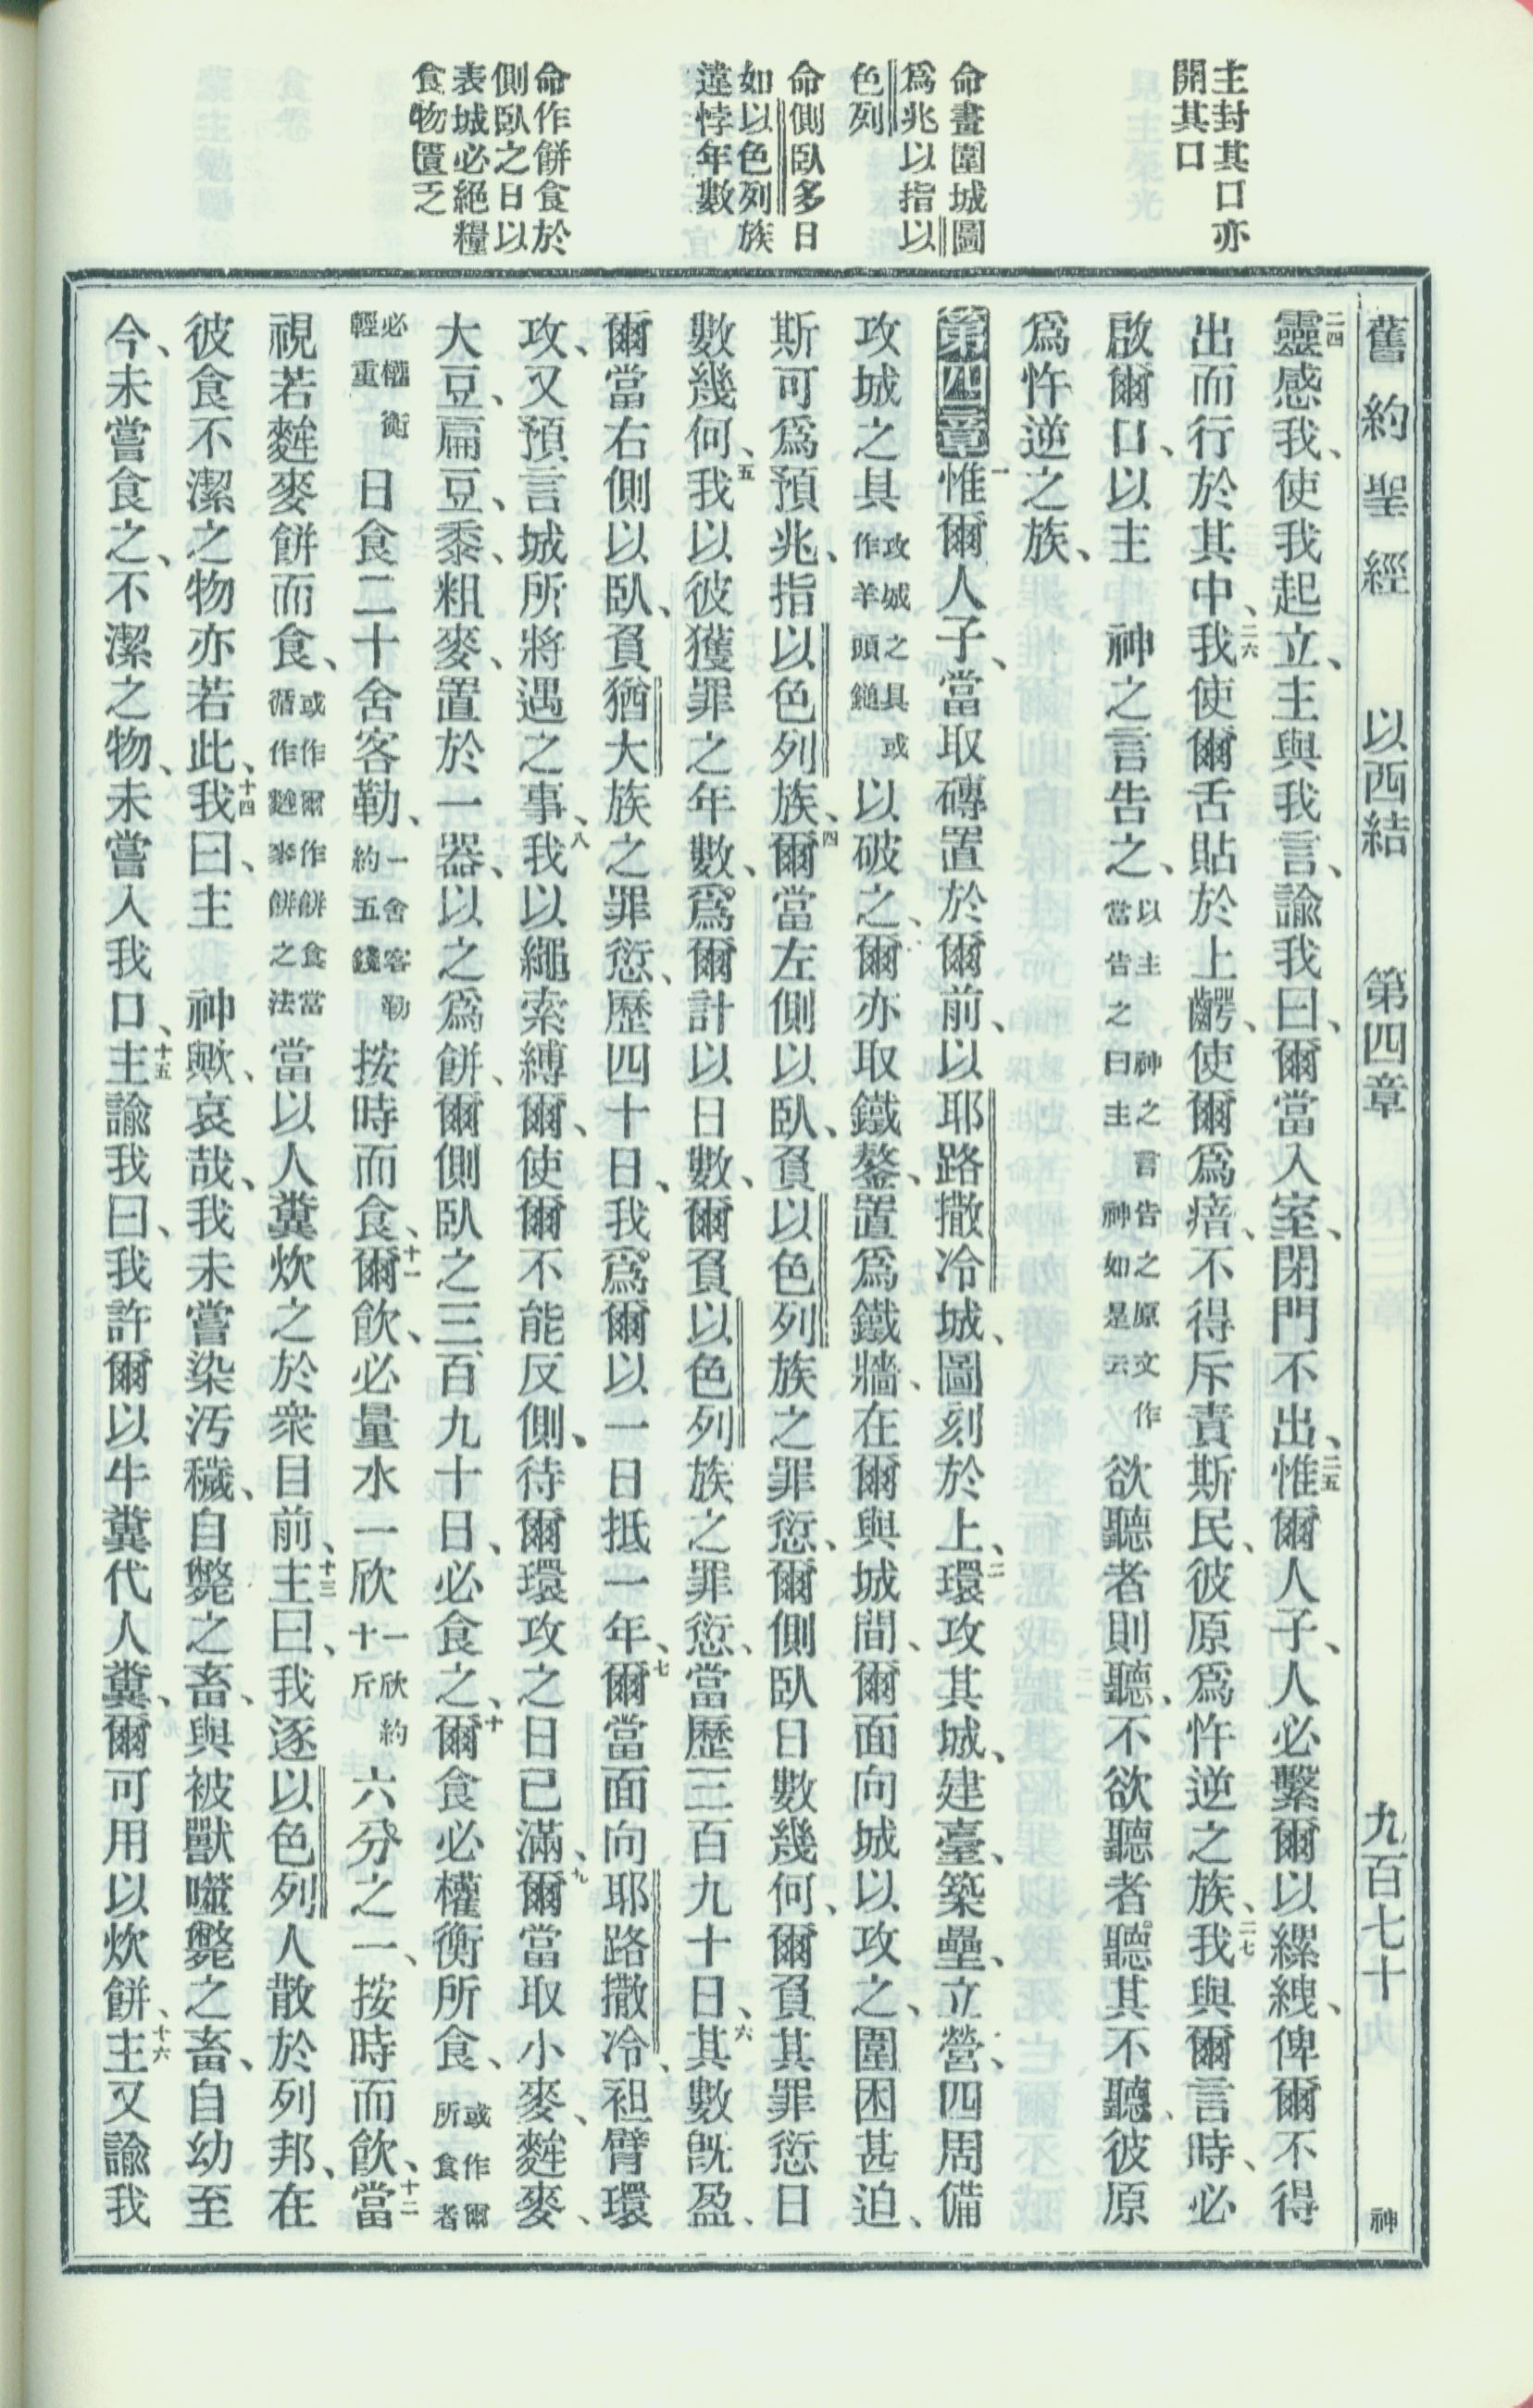 舊約聖經 以西結 第四章 九百七十 神
主封其口亦
開其口
命畫圍城圖
爲兆以指以
色列
命側臥多日
如以色列族
違悖年數
命作餅食於
側臥之日以
表城必絕糧
食物匱乏
二四靈感我、使我起立、主與我言、諭我曰、爾當入室、閉門不出、二五惟爾人子、人必繫爾以縲絏、俾爾不得
出而行於其中、二六我使爾舌貼於上齶、使爾爲瘖、不得斥責斯民、彼原爲忤逆之族、二七我與爾言時、必
啟爾口、以主 神之言告之、以主 神之言告之原文作當告之曰主 神如是云 欲聽者則聽、不欲聽者聽其不聽、彼原
爲忤逆之族、
第四章 一惟爾人子、當取磚置於爾前、以耶路撒冷城、圖刻於上、二環攻其城、建臺、築壘、立營、四周備
攻城之具 攻城之具或作羊頭鎚 以破之、爾亦取鐵鏊、置爲鐵牆、在爾與城間、爾面向城以攻之、圍困甚迫、
斯可爲預兆、指以色列族、四爾當左側以臥、負以色列族之罪愆、爾側臥日數幾何、爾負其罪愆日
數幾何、五我以彼獲罪之年數、爲爾計以日數、爾負以色列族之罪愆、當歷三百九十日、六其數旣盈、
爾當右側以臥、負猶大族之罪愆、歷四十日、我爲爾以一日抵一年、七爾當面向耶路撒冷、袒臂環
攻、又預言城所將遇之事、八我以繩索縛爾、使爾不能反側、待爾環攻之日已滿、九爾當取小麥、麰麥、
大豆、扁豆、黍、粗麥、置於一器、以之爲餅、爾側臥之三百九十日、必食之、十爾食必權衡所食、或作爾所食者
必權衡輕重 日食二十舍客勒、一舍客勒約五錢 按時而食、十一爾飲、必量水一欣 一欣約十斤 六分之一、按時而飲、十二當
視若麰麥餅而食、或作爾作餅食當循作麰麥餅之法 當以人糞炊之於衆目前、十三主曰、我逐以色列人散於列邦、在
彼食不潔之物亦若此、十四我曰、主 神歟、哀哉、我未嘗染汚穢、自斃之畜、與被獸囓斃之畜、自幼至
今、未嘗食之、不潔之物、未嘗入我口、十五主諭我曰、我許爾以牛糞代人糞、爾可用以炊餅、十六主又諭我